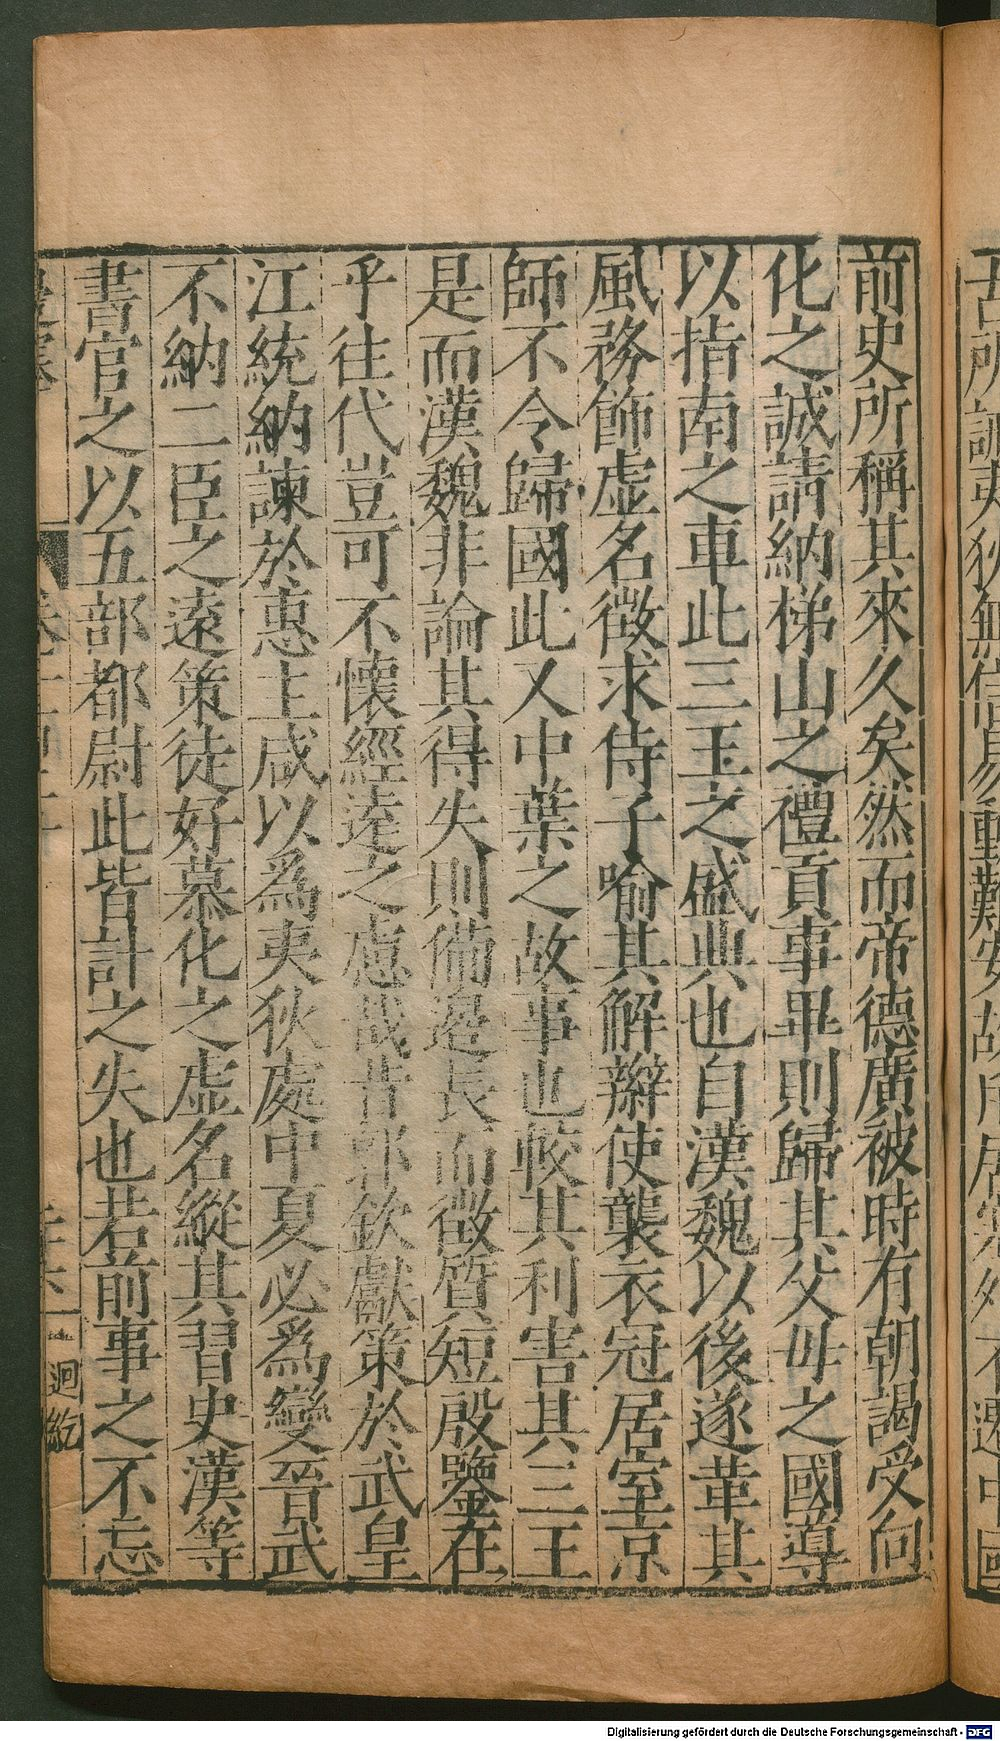 前史所稱其來久矣然而帝德廣被時有朝謁受向
化之誠請納梯山之禮貢事畢則歸其父母之國導
以指南之車此三王之盛典也自漢魏以後遂革其
風務飾虛名徵求侍子喻其解辮使襲衣冠居室京
師不令歸國此又中葉之故事也較其利害其三王
是而漢魏非論其得失則備邊長而徵質短殷鑒在
乎往代豈可不懷經遠之慮哉昔郭欽獻策於武皇
江統納諫於惠主咸以爲夷狄處中夏必爲變晉武
不納二臣之遠策徒好慕化之虛名縱其習史漢等
書官之以五部都尉此皆計之失也若前事之不忘
迴紇
Digitalisierung gefördert durch die Deutsche Forschungsgemeinschaft - DFG